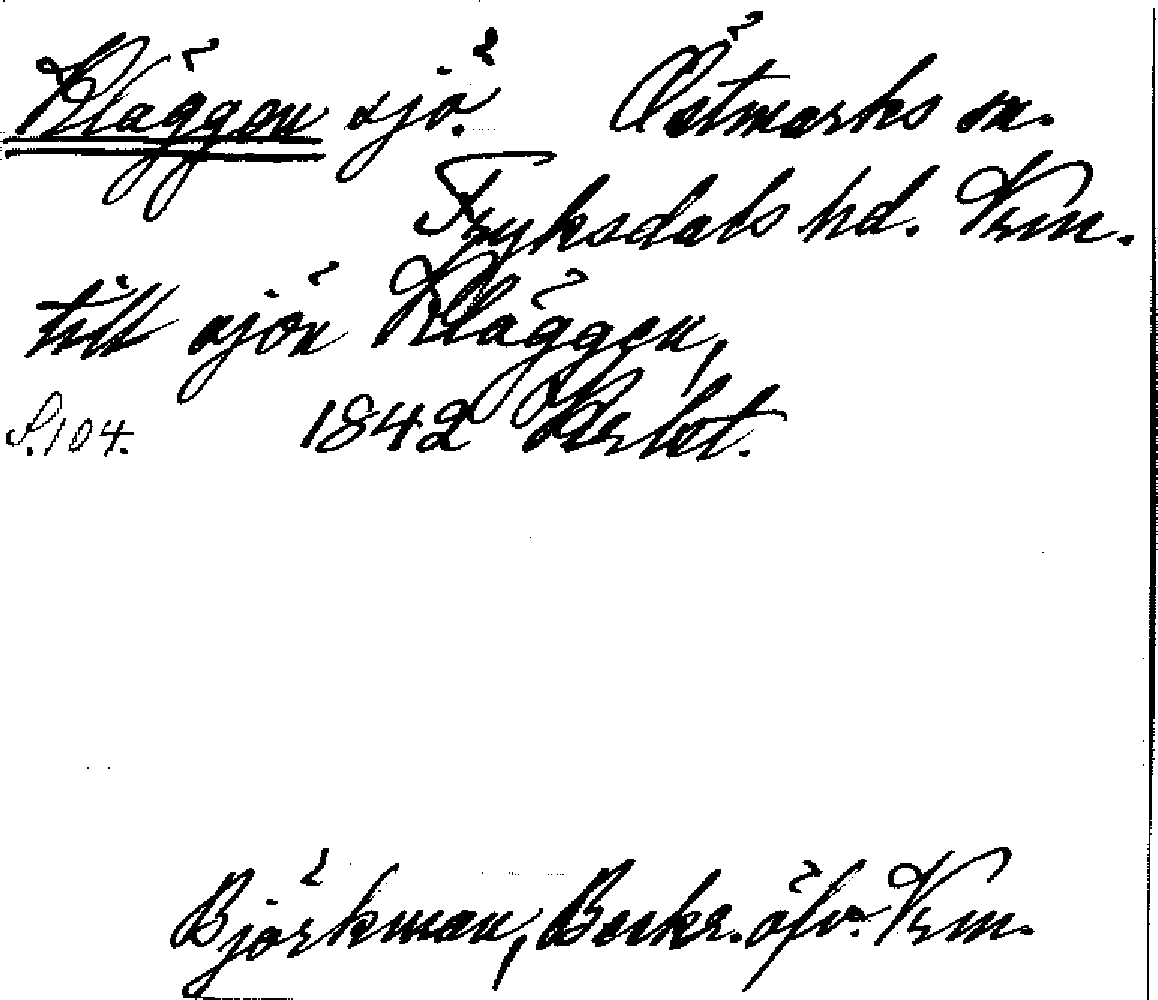 Kläggen sjö. Östmarks sn.
Fryksdals hd. Vrm.
till sjön Kläggen,
S.104. 1842
Björkman, Beskr. öfv. Vrm.